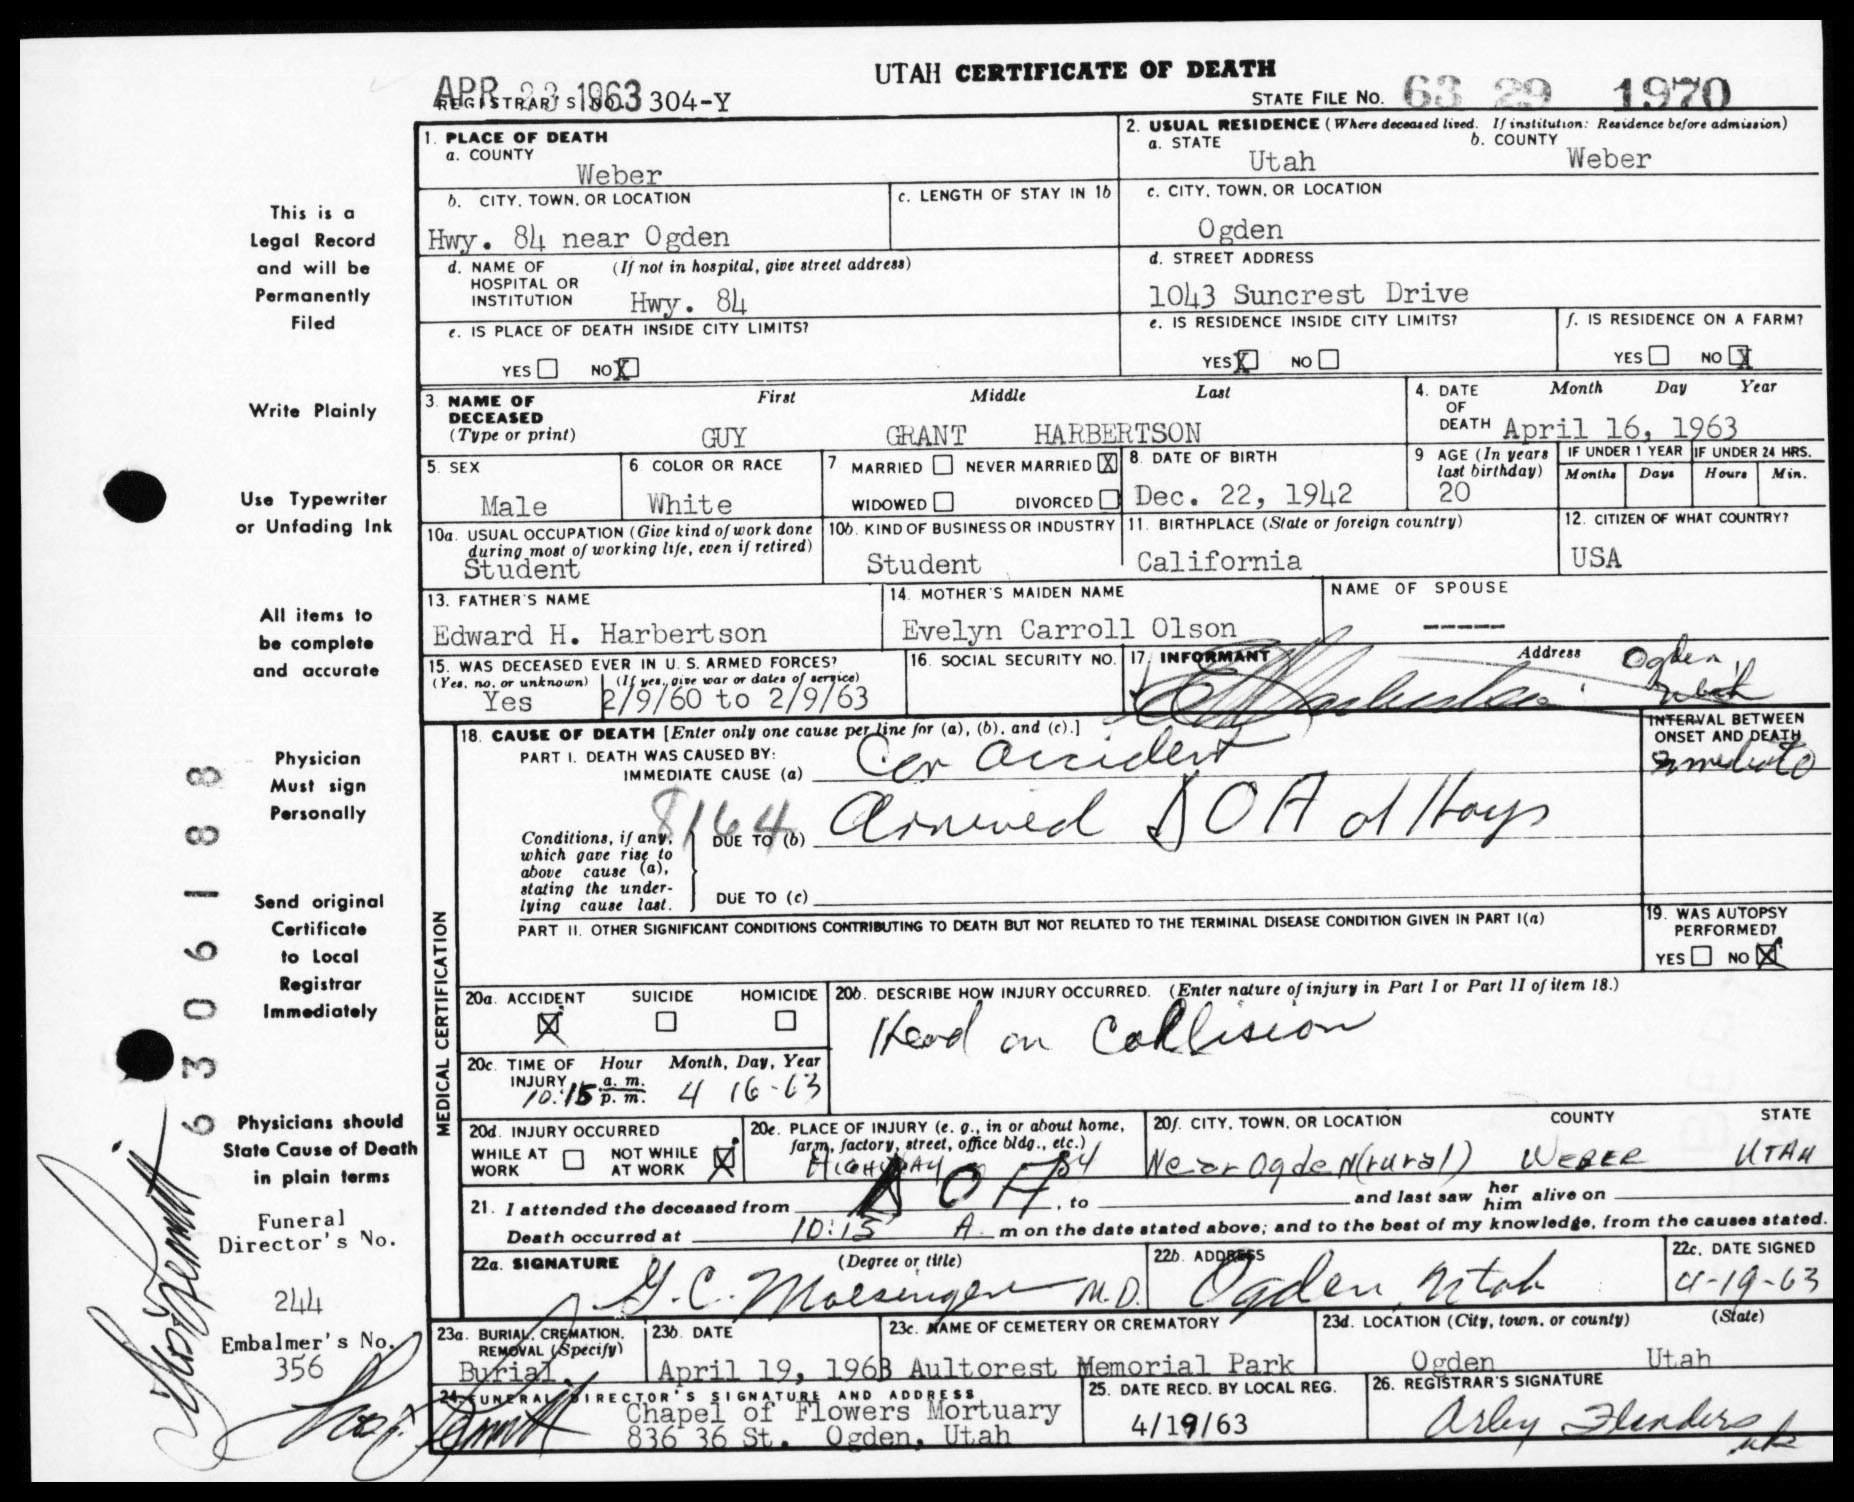 UTAH CERTIFICATE OF DEATH
APR 23 1963
REGISTRAR'S NO. 304-Y
STATE FILE NO. 63 29 1970
1. PLACE OF DEATH
a. COUNTY
Weber
2. USUAL RESIDENCE (Where deceased lived. If institution: Residence before admission)
a. STATE
Utah
b. COUNTY
Weber
b. CITY, TOWN, OR LOCATION
Hwy. 84 near Ogden
c. LENGTH OF STAY IN 1b
c. CITY, TOWN, OR LOCATION
Ogden
d. NAME OF HOSPITAL OR INSTITUTION
(If not in hospital, give street address)
Hwy. 84
d. STREET ADDRESS
1043 Suncrest Drive
e. IS PLACE OF DEATH INSIDE CITY LIMITS?
YES NO X
e. IS RESIDENCE INSIDE CITY LIMITS?
YES X NO
f. IS RESIDENCE ON A FARM?
YES NO X
3. NAME OF DECEASED
(Type or print)
First Middle Last
GUY GRANT HARBERTSON
4. DATE OF DEATH
Month Day Year
April 16, 1963
5. SEX
Male
6. COLOR OR RACE
White
7. MARRIED NEVER MARRIED X
WIDOWED DIVORCED
8. DATE OF BIRTH
Dec. 22, 1942
9 AGE (In years last birthday)
20
IF UNDER 1 YEAR
Months Days
IF UNDER 24 HRS.
Hours Min.
10a. USUAL OCCUPATION (Give kind of work done during most of working life, even if retired)
Student
10b. KIND OF BUSINESS OR INDUSTRY
Student
11. BIRTHPLACE (State or foreign country)
California
12. CITIZEN OF WHAT COUNTRY?
USA
13. FATHER'S NAME
Edward H. Harbertson
14. MOTHER'S MAIDEN NAME
Evelyn Carroll Olson
NAME OF SPOUSE
-----
15. WAS DECEASED EVER IN U. S. ARMED FORCES?
(Yes, no, or unknown) (If yes, give war or dates of service)
Yes 2/9/60 to 2/9/63
16. SOCIAL SECURITY NO.
17. INFORMANT
Harbertson
Address
Ogden, Utah
MEDICAL CERTIFICATION
18. CAUSE OF DEATH [Enter only one cause per line for (a), (b), and (c).]
INTERVAL BETWEEN ONSET AND DEATH
PART I. DEATH WAS CAUSED BY:
IMMEDIATE CAUSE (a) Car accident
immediate
8164
Conditions, if any, which gave rise to above cause (a), stating the underlying cause last.
DUE TO (b) Arrived DOA at
DUE TO (c)
PART II. OTHER SIGNIFICANT CONDITIONS CONTRIBUTING TO DEATH BUT NOT RELATED TO THE TERMINAL DISEASE CONDITION GIVEN IN PART I(a)
19. WAS AUTOPSY PERFORMED?
YES NO X
20a. ACCIDENT SUICIDE HOMICIDE
X
20b. DESCRIBE HOW INJURY OCCURRED. (Enter nature of injury in Part I or Part II of item 18.)
Head on Collision
20c. TIME OF INJURY
Hour Month, Day, Year
10:15 a. m. p. m. 4 16-63
20d. INJURY OCCURRED
WHILE AT WORK NOT WHILE AT WORK X
20e. PLACE OF INJURY (e. g., in or about home, farm, factory, street, office bldg., etc.)
HIGHWAY 84
20f. CITY, TOWN, OR LOCATION COUNTY STATE
Near Ogden (rural) WEBER UTAH
21. I attended the deceased from DOA, to and last saw her him alive on
Death occurred at 10:15 A. m on the date stated above; and to the best of my knowledge, from the causes stated.
22a. SIGNATURE (Degree or title)
G. C. M.D.
22b. ADDRESS
Ogden, Utah
22c. DATE SIGNED
4-19-63
23a. BURIAL, CREMATION, REMOVAL (Specify)
Burial
23b. DATE
April 19, 1963
23c. NAME OF CEMETERY OR CREMATORY
Aultorest Memorial Park
23d. LOCATION (City, town, or county) (State)
Ogden Utah
24. FUNERAL DIRECTOR'S SIGNATURE AND ADDRESS
Chapel of Flowers Mortuary
836 36 St. Ogden, Utah
25. DATE RECD. BY LOCAL REG.
4/19/63
26. REGISTRAR'S SIGNATURE
Arley Flinders
This is a
Legal Record
and will be
Permanently
Filed
Write Plainly
Use Typewriter
or Unfading Ink
All items to
be complete
and accurate
Physician
Must sign
Personally
Send original
Certificate
to Local
Registrar
Immediately
Physicians should
State Cause of Death
in plain terms
Funeral
Director's No.
244
Embalmer's No.
356
63 06188